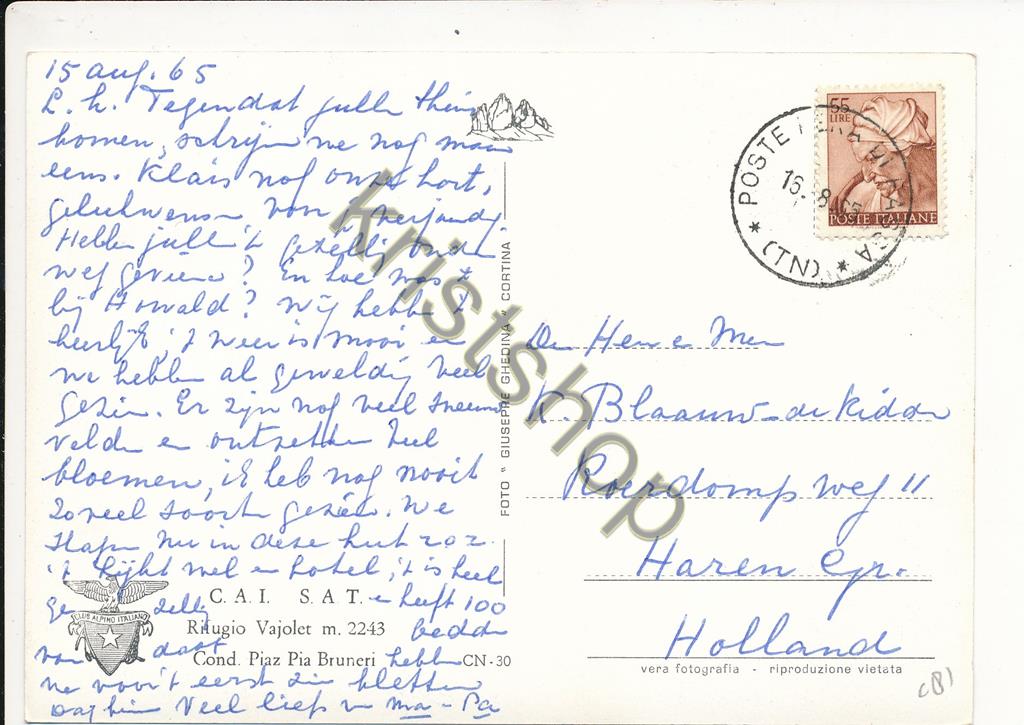 15 aug. 65
L. h. Tegen dat jullie thuis
komen, schrijven we nog maar
eens. Klaas nog onze hart.
gelukwensen van verjaardag
Hebben jullie 't gezellig onder
weg gevierd? En hoe was 't
bij Howald? Wij hebben 't
heerlijk, 't weer is mooi en
we hebben al geweldig veel
gezien. Er zijn nog veel sneeuw
velden en ontzettend veel
bloemen, ik heb nog nooit
zoveel soorten gezien. We
slapen nu in deze hut
't lijkt wel een hotel, 't is heel
gezellig en heeft 100
bedden
van daar hebben
we voor 't eerst
Dag hoor Veel liefs v. Ma - Pa
CLUB ALPINO ITALIANO
C.A.I. S.A.T.
Rifugio Vajolet m. 2243
Cond. Piaz Pia Bruneri
CN-30
FOTO " GIUSEPPE GHEDINA " CORTINA
kristshop
55
LIRE
POSTE ITALIANE
POSTE PERA DI FASSA
16.-8.-65
* (TN) *
Den Heer en Mevr
K. Blaauw-de Ridder
Roerdompweg 11
Haren Gr.
Holland
vera fotografia - riproduzione vietata
(8)